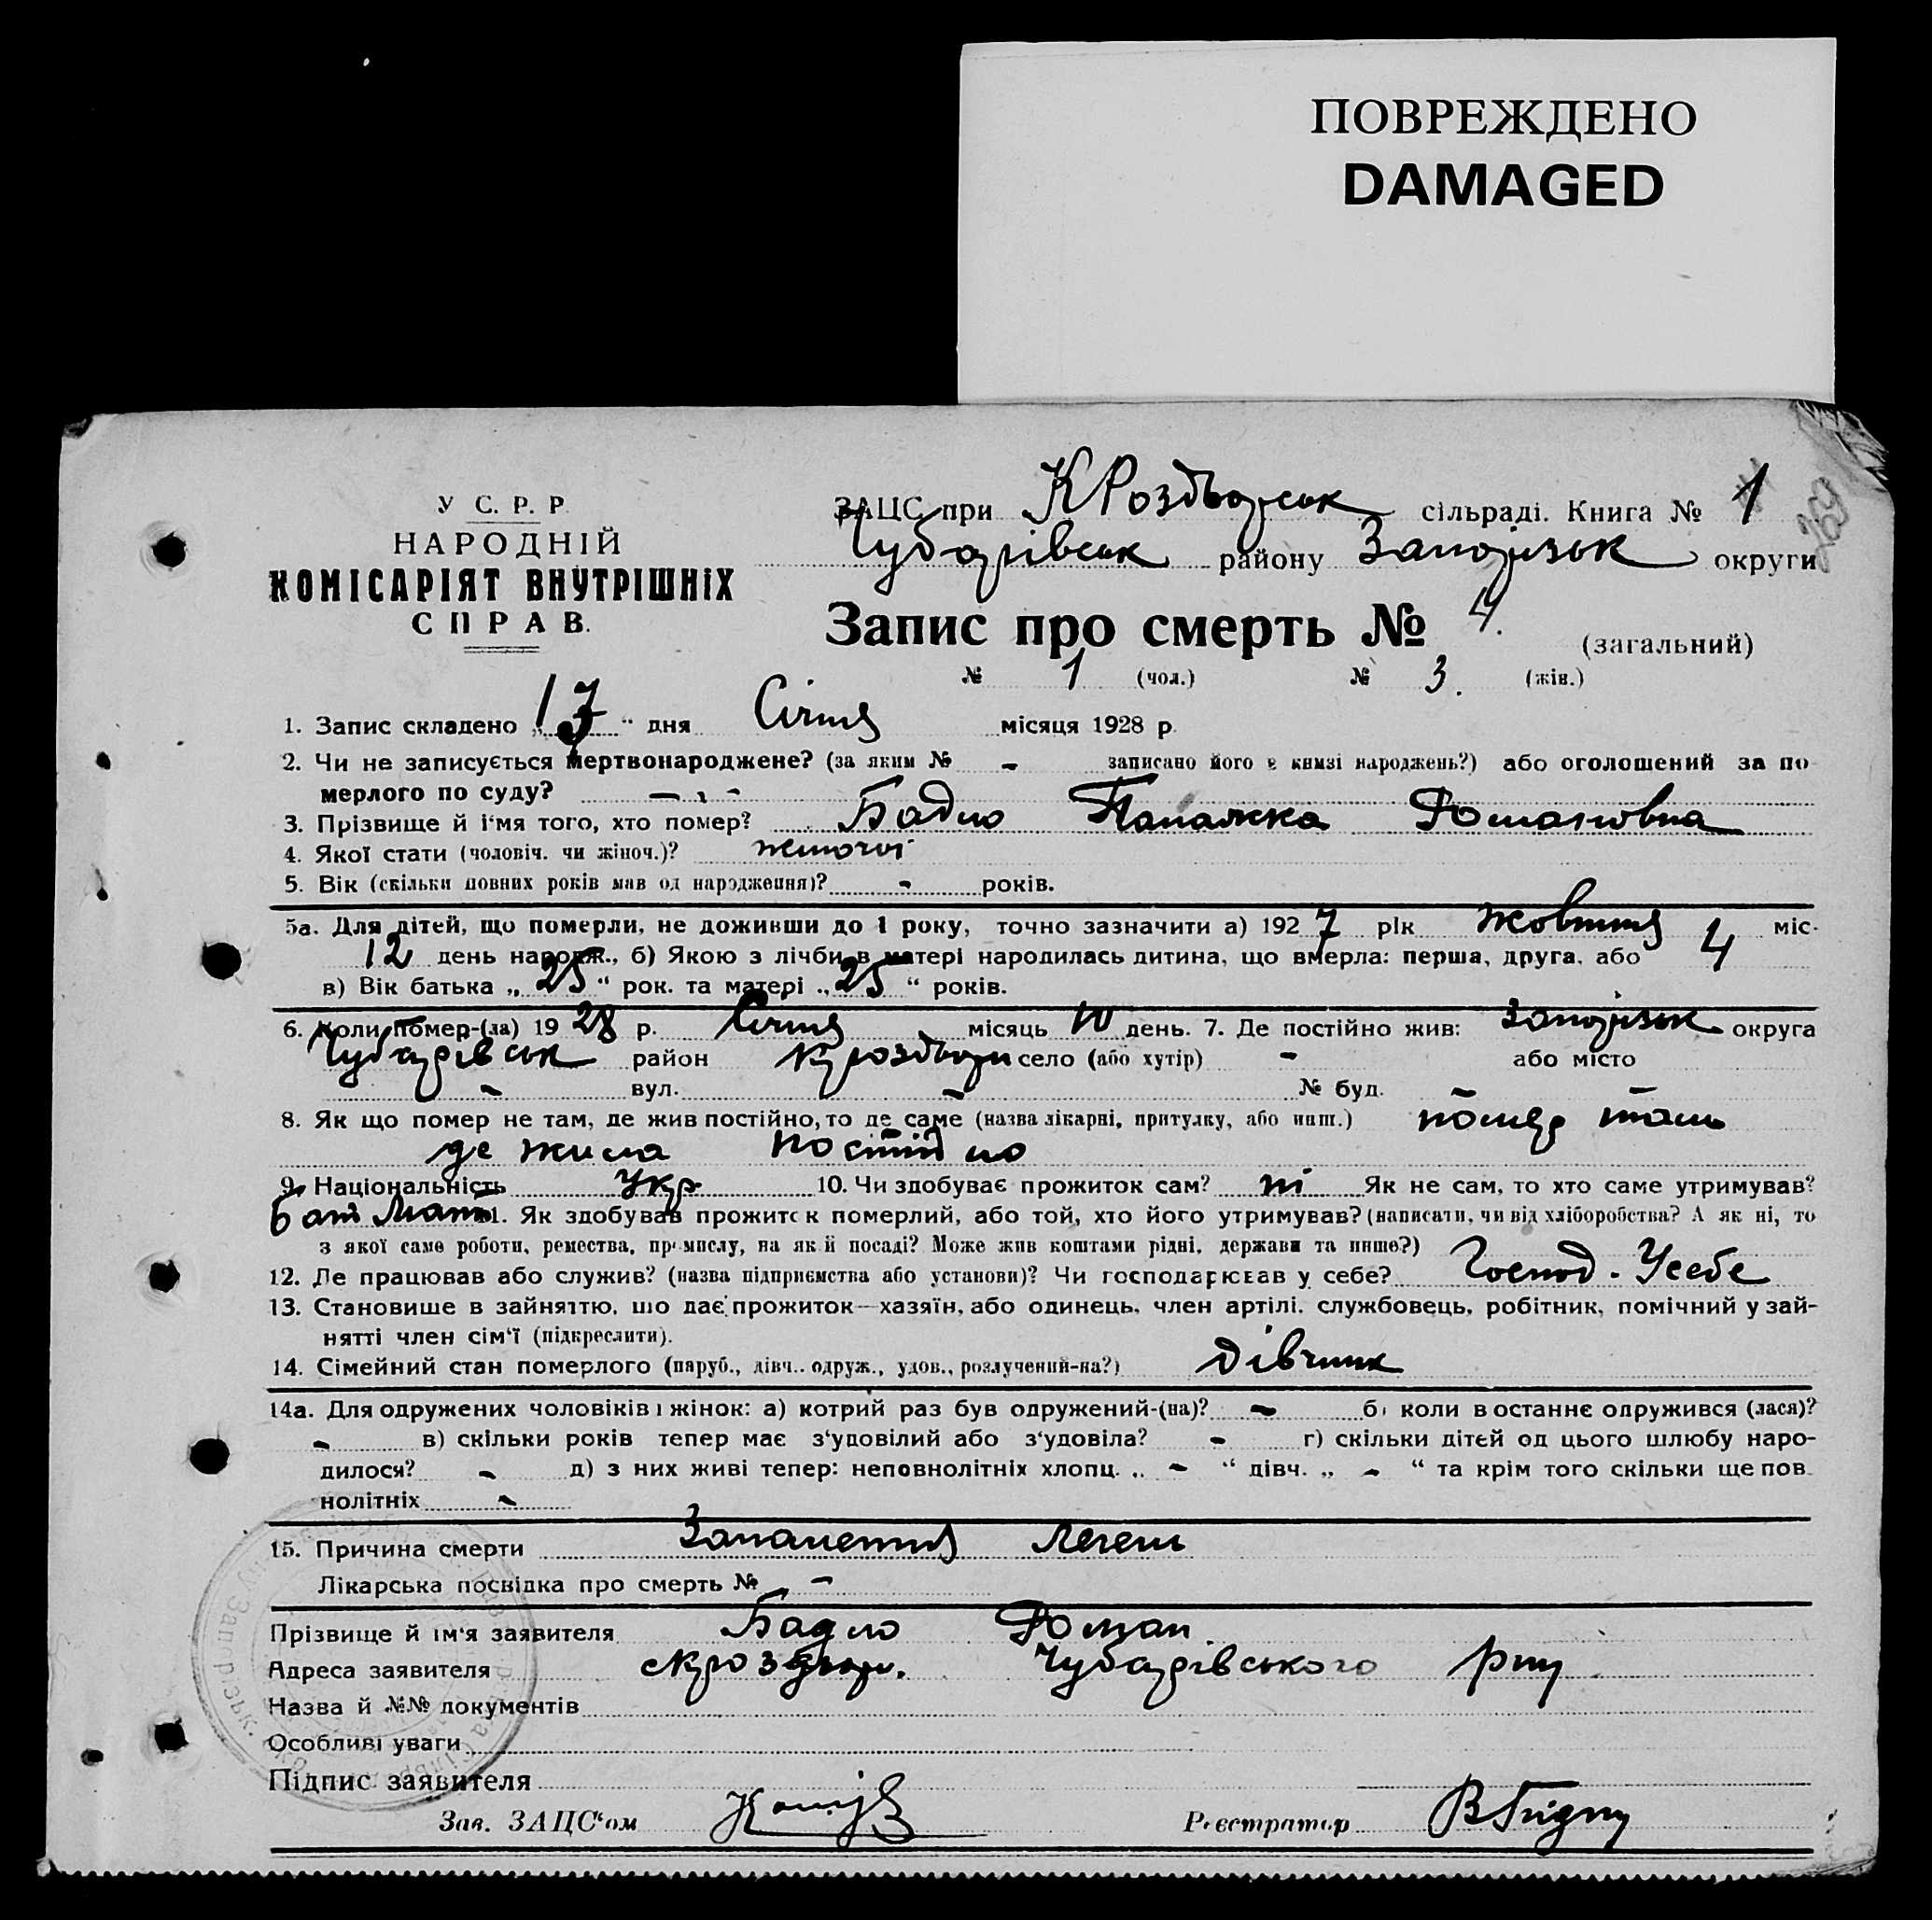 ПОВРЕЖДЕНО
DAMAGED
У С. Р. Р.
НАРОДНІЙ
КОМІСАРІЯТ ВНУТРІШНІХ
СПРАВ.
ЗАЦС при КРоздорськ сільраді. Книга № 1
Чубарівськ району Запоріськ округи
Запис про смерть № 4. (загальний)
№ 1 (чол.) № 3. (жін.)
1. Запис складено „17“ дня Січня місяця 1928 р.
2. Чи не записується мертвонароджене? (за яким № - записано його в книзі народжень?) або оголошений за по
мерлого по суду?
3. Прізвище й і'мя того, хто помер? Бадло Палажка Романовна
4. Якої стати (чоловіч. чи жіноч.)? жіночої
5. Вік (скільки повних років мав од народження)? - років.
5а. Для дітей, що померли, не доживши до 1 року, точно зазначити а) 1927 рік жовтня 4 міс.
12 день народж., б) Якою з лічби в матері народилась дитина, що вмерла: перша, друга, або
в) Вік батька „25“ рок. та матері „25“ років.
6. Коли помер-(ла) 1928 р. Січня місяць 10 день. 7. Де постійно жив: Запоріськ округа
Чубарівськ район Кроздори село (або хутір) - або місто
- вул. - № буд. -
8. Як що помер не там, де жив постійно, то де саме (назва лікарні, притулку, або инш.) помер там
де жила постійно
9. Національність Укр. 10. Чи здобуває прожиток сам? ні Як не сам, то хто саме утримував?
бат Мати 11. Як здобував прожиток померлий, або той, хто його утримував? (написати, чи від хліборобства? А як ні, то
з якої саме роботи, ремества, промислу, на якій посаді? Може жив коштами рідні, держави та инше?)
12. Де працював або служив? (назва підприємства або установи)? Чи господарював у себе? Господ. Усебе
13. Становище в зайняттю, що дає прожиток—хазяїн, або одинець, член артілі. службовець, робітник, помічний у зай-
нятті член сім'ї (підкреслити).
14. Сімейний стан померлого (паруб., дівч.. одруж., удов., розлучений-на?) дівчина
14а. Для одружених чоловіків і жінок: а) котрий раз був одружений-(на)? - б) коли востаннє одружився (лася)?
- в) скільки років тепер має з'удовілий або з'удовіла? - г) скільки дітей од цього шлюбу наро-
дилося? - д) з них живі тепер: неповнолітніх хлопц. „ - “ дівч. „ - “ та крім того скільки ще пов
нолітніх -
15. Причина смерти Запалення Легень
Лікарська посвідка про смерть № -
Прізвище й ім'я заявителя Бадло Роман
Адреса заявителя Чубарівського рну
Назва й №№ документів
Особливі уваги
Підпис заявителя
Зав. ЗАЦС'ом Реєстратор